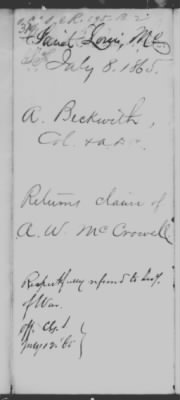 Saint Louis, Mo
July 8. 1865.
A. Beckwith,
Col. &
Returns claim of
A. W. McCrowell
Respectfully referred to Secy.
of War.
July 12/65